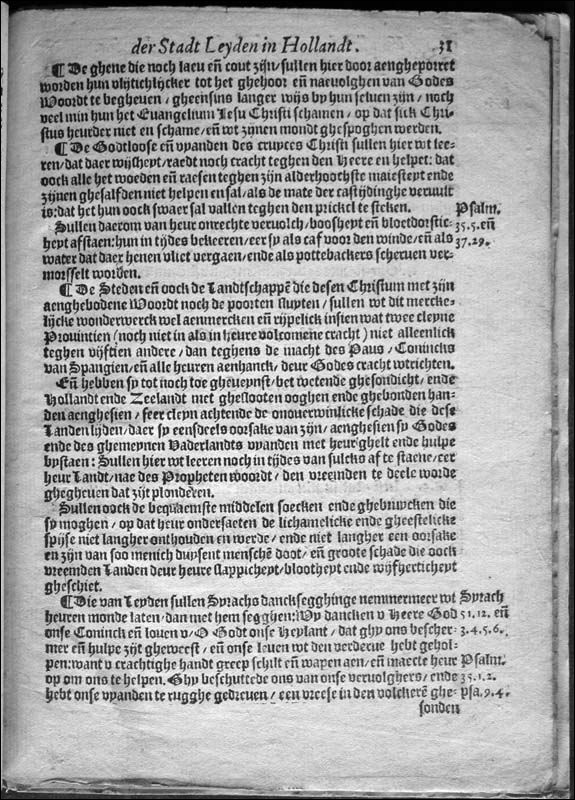 der Stadt Leyden in Hollandt. 31
¶ De ghene die noch laeu eñ cout zijn/ sullen hier door aengheporret
worden hun vlijtichlijcker tot het ghehoor eñ naevolghen van Godes
Woordt te begheven/ gheensins langer wijs by hun selven zijn/ noch
veel min hun het Euangelium Jesu Christi schamen/ op dat sick Chri-
stus heurder niet en schame/ eñ wt zijnen mondt ghespoghen werden.
¶ De Godtloose eñ vyanden des cruyces Christi sullen hier wt lee-
ren/ dat daer wijsheyt/ raedt noch cracht teghen den Heere en helpet: dat
oock alle het woeden eñ raesen teghen zijn alderhoochste maiesteyt ende
zijnen ghesalfden niet helpen en sal/ als de mate der castijdinghe vervult
is: dat het hun oock swaer sal vallen teghen den prickel te steken.
Psalm.
Sullen daerom van heur onrechte vervolch/ boosheyt eñ bloetdorstic- 35.5. eñ
heyt afstaen: hun in tijdes bekeeren/ eer sy als caf voor den winde/ eñ als 37.29.
water dat daer henen vliet vergaen/ ende als pottebackers scherven ver-
morsselt worden.
¶ De Steden eñ oock de Landtschappē die desen Christum met zijn
aenghebodene Woordt noch de poorten sluyten/ sullen wt dit mercke-
lijcke wonderwerck wel aenmercken eñ rijpelick insien wat twee cleyne
Provintien (noch niet in als in heure volcomene cracht) niet alleenlick
teghen vijftien andere/ dan teghens de macht des Paus/ Conincks
van Spangien/ eñ alle heuren aenhanck/ deur Godes cracht wtrichten.
Eñ hebben sy tot noch toe gheveynst/ bet wetende ghesondicht/ ende
Hollandt ende Zeelandt met ghesloten ooghen ende ghebonden han-
den aenghesien/ seer cleyn achtende de onoverwinlicke schade die dese
Landen lijden/ daer sy eensdeels oorsake van zijn/ aenghesien sy Godes
ende des ghemeynen Vaderlandts vyanden met heur ghelt ende hulpe
bystaen: Sullen hier wt leeren noch in tijdes van sulcks af te staene/ eer
heur Landt/ nae des Propheten woordt/ den vreemden te deele worde
ghegheven dat zijt plonderen.
Sullen oock de bequaemste middelen soecken ende ghebruycken die
sy moghen/ op dat heur ondersaeten de lichamelicke ende gheestelicke
spijse niet langher onthouden en werde/ ende niet langher een oorsake
en zijn van soo menich duysent menschē doot/ eñ groote schade die oock
vreemden Landen deur heure slappicheyt/ blootheyt ende wijfherticheyt
gheschiet.
¶ Die van Leyden sullen Syrachs dancksegghinge nemmermeer wt Syrach
heuren monde laten/ dan met hem seggen: Wy dancken v Heere God 51.12. eñ
onse Coninck eñ loven v/ O Godt onse Heylant/ dat ghy ons bescher- 3.4.5.6.
mer eñ hulpe zijt gheweest/ eñ onse leven wt den verderve hebt gehol-
pen: want v crachtighe handt greep schilt eñ wapen aen/ eñ maecte heur Psalm.
op om ons te helpen. Ghy beschuttede ons van onse vervolghers/ ende 35.1.2.
hebt onse vyanden te rugghe gedreven/ een vreese in den volckerē ghe- Psa.9.4.
sonden